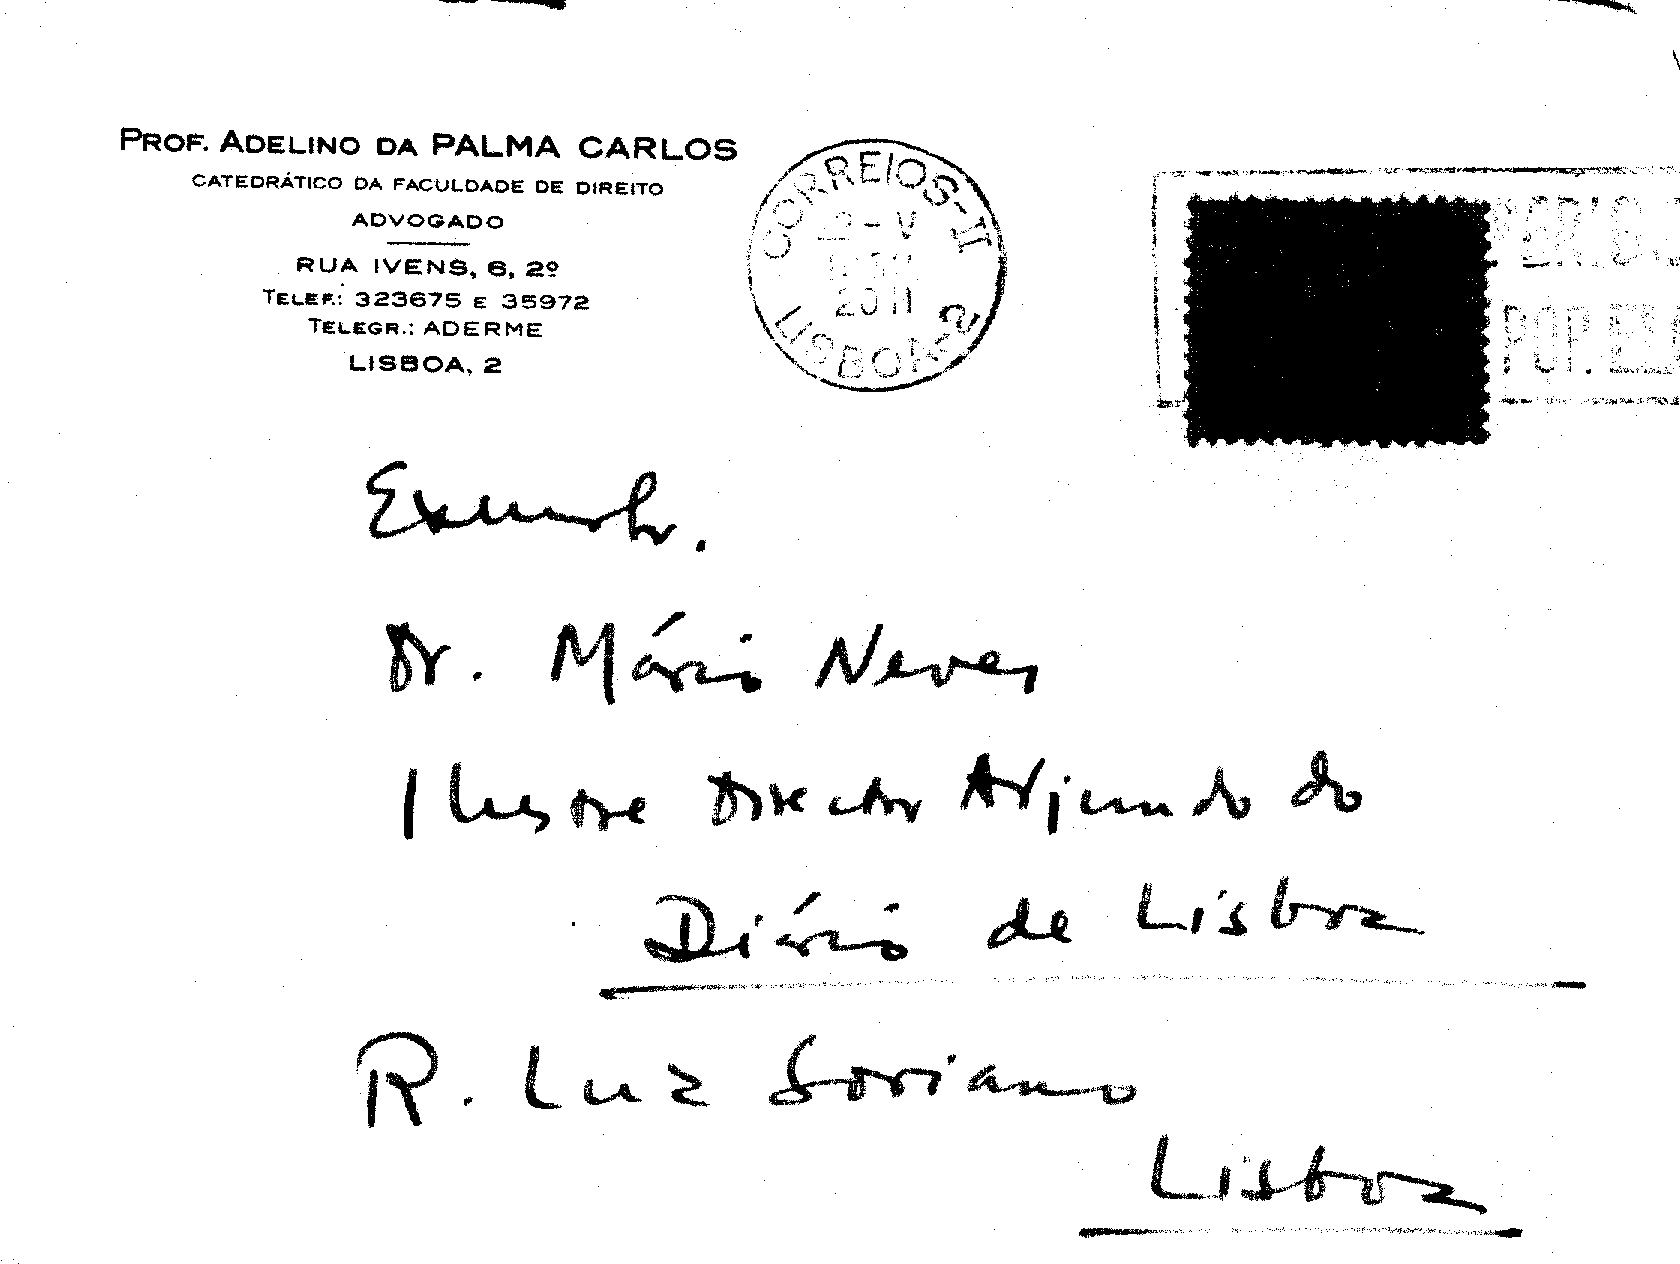 PROF. ADELINO DA PALMA CARLOS
CATEDRÁTICO DA FACULDADE DE DIREITO
ADVOGADO
RUA IVENS, 6, 2º
TELEF.: 323675 E 35972
TELEGR.: ADERME
LISBOA, 2
CORREIOS-II
-V
20 H
LISBOA-2
POP.
Dr. Mário Neves
Ilustre Director Adjunto do
Diário de Lisboa
R. Luz Soriano
Lisboa